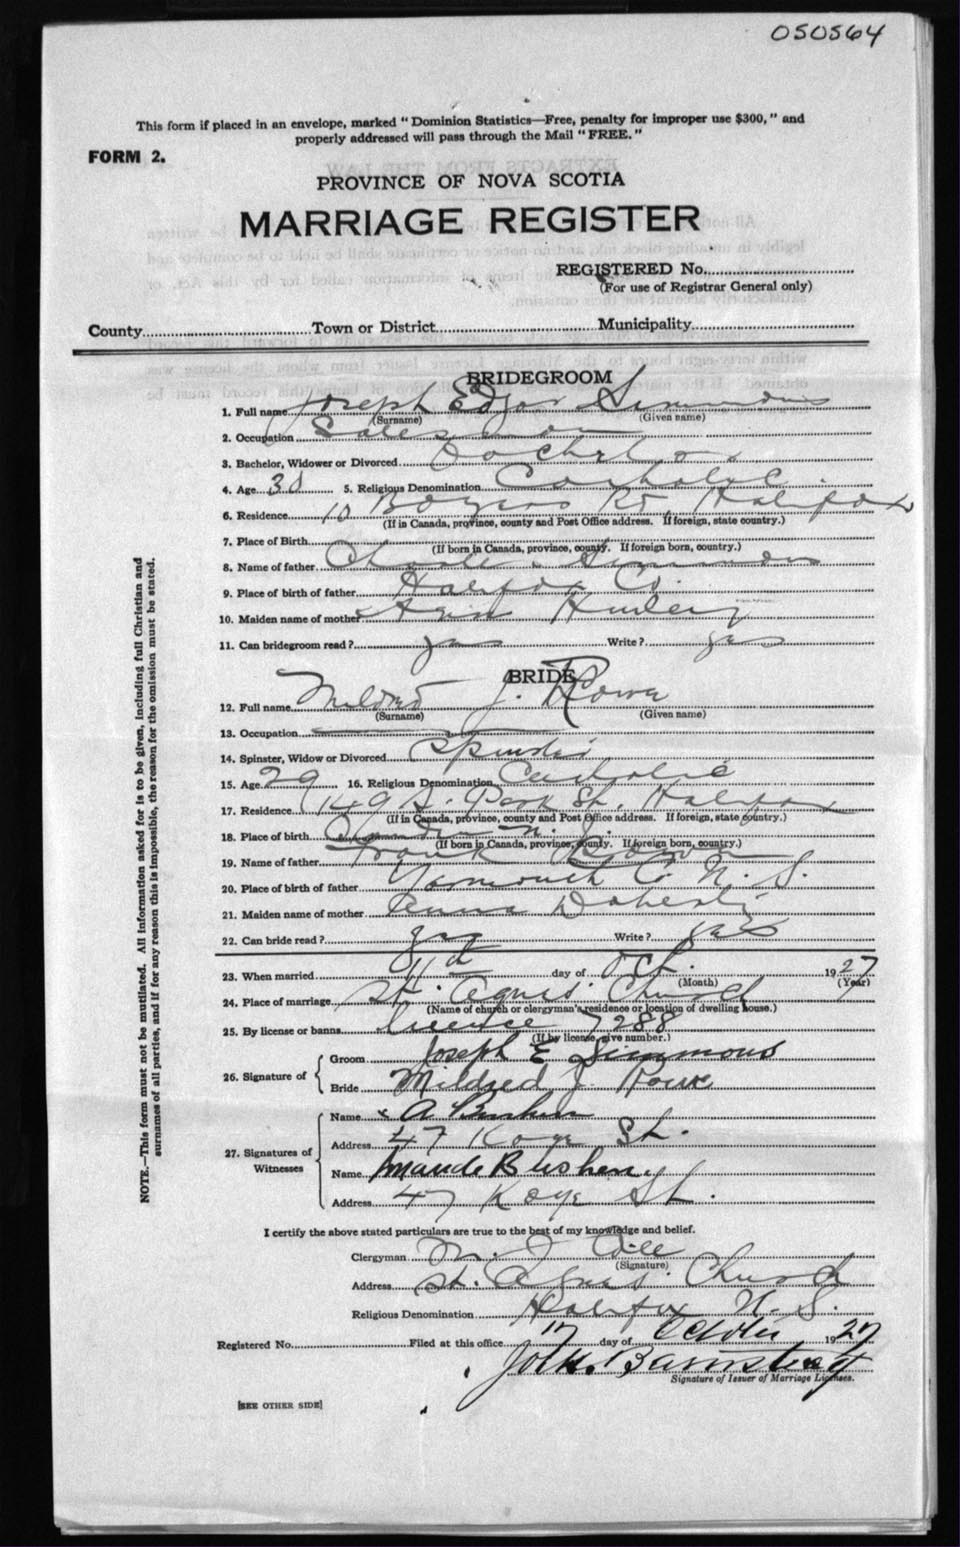 050564
This form if placed in an envelope, marked "Dominion Statistics—Free, penalty for improper use $300," and
properly addressed will pass through the Mail "FREE."
FORM 2.
PROVINCE OF NOVA SCOTIA
MARRIAGE REGISTER
REGISTERED No.
(For use of Registrar General only)
County Town or District Municipality
BRIDEGROOM
1. Full name Joseph Edgar Simmons
(Surname) (Given name)
2. Occupation Salesman
3. Bachelor, Widower or Divorced Bachelor
4. Age 30 5. Religious Denomination Catholic
6. Residence 10 Rd Halifax
(If in Canada, province, county and Post Office address. If foreign, state country.)
7. Place of Birth
(If born in Canada, province, county. If foreign born, country.)
8. Name of father Charles Simmons
9. Place of birth of father Halifax Co.
10. Maiden name of mother Hurley
11. Can bridegroom read? yes Write? yes
BRIDE
12. Full name Mildred J. Rowe
(Surname) (Given name)
13. Occupation
14. Spinster, Widow or Divorced Spinster
15. Age 29 16. Religious Denomination Catholic
17. Residence 149 S. Park St. Halifax
(If in Canada, province, county and Post Office address. If foreign, state country.)
18. Place of birth
(If born in Canada, province, county. If foreign born, country.)
19. Name of father Frank
20. Place of birth of father Yarmouth Co. N. S.
21. Maiden name of mother Doherty
22. Can bride read? yes Write? yes
23. When married 11th day of Oct. 1927
(Month) (Year)
24. Place of marriage St. Agnes' Church
(Name of church or clergyman's residence or location of dwelling house.)
25. By license or banns license 7288
(If by license, give number.)
26. Signature of Groom Joseph E Simmons
Bride Mildred J. Rowe
27. Signatures of Witnesses Name A
Address 47 Kaye St.
Name Maude Bushen
Address 47 Kaye St.
I certify the above stated particulars are true to the best of my knowledge and belief.
Clergyman M. J.
(Signature)
Address St. Agnes' Church
Religious Denomination Halifax N. S.
Registered No. Filed at this office 17 day of October 1927
Signature of Issuer of Marriage Licenses.
[SEE OTHER SIDE]
NOTE.—This form must not be mutilated. All information asked for is to be given, including full Christian and
surnames of all parties, and if for any reason this is impossible, the reason for the omission must be stated.